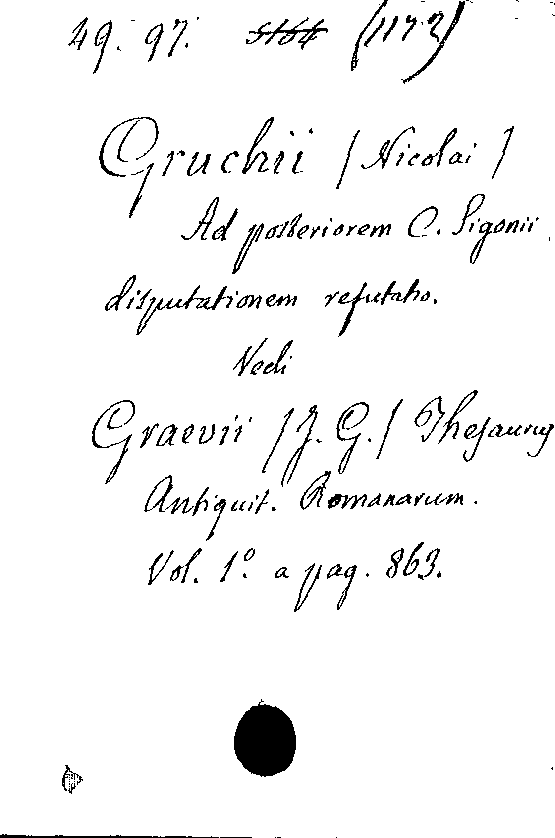 49. 97. 5164 (1172)
Gruchii (Nicolai)
Ad posteriorem C. Sigonii
disputationem refutatio.
Vedi
Graevii (J. G.) Thesaurus
Antiquit. Romanarum.
Vol. 1º. a pag. 863.